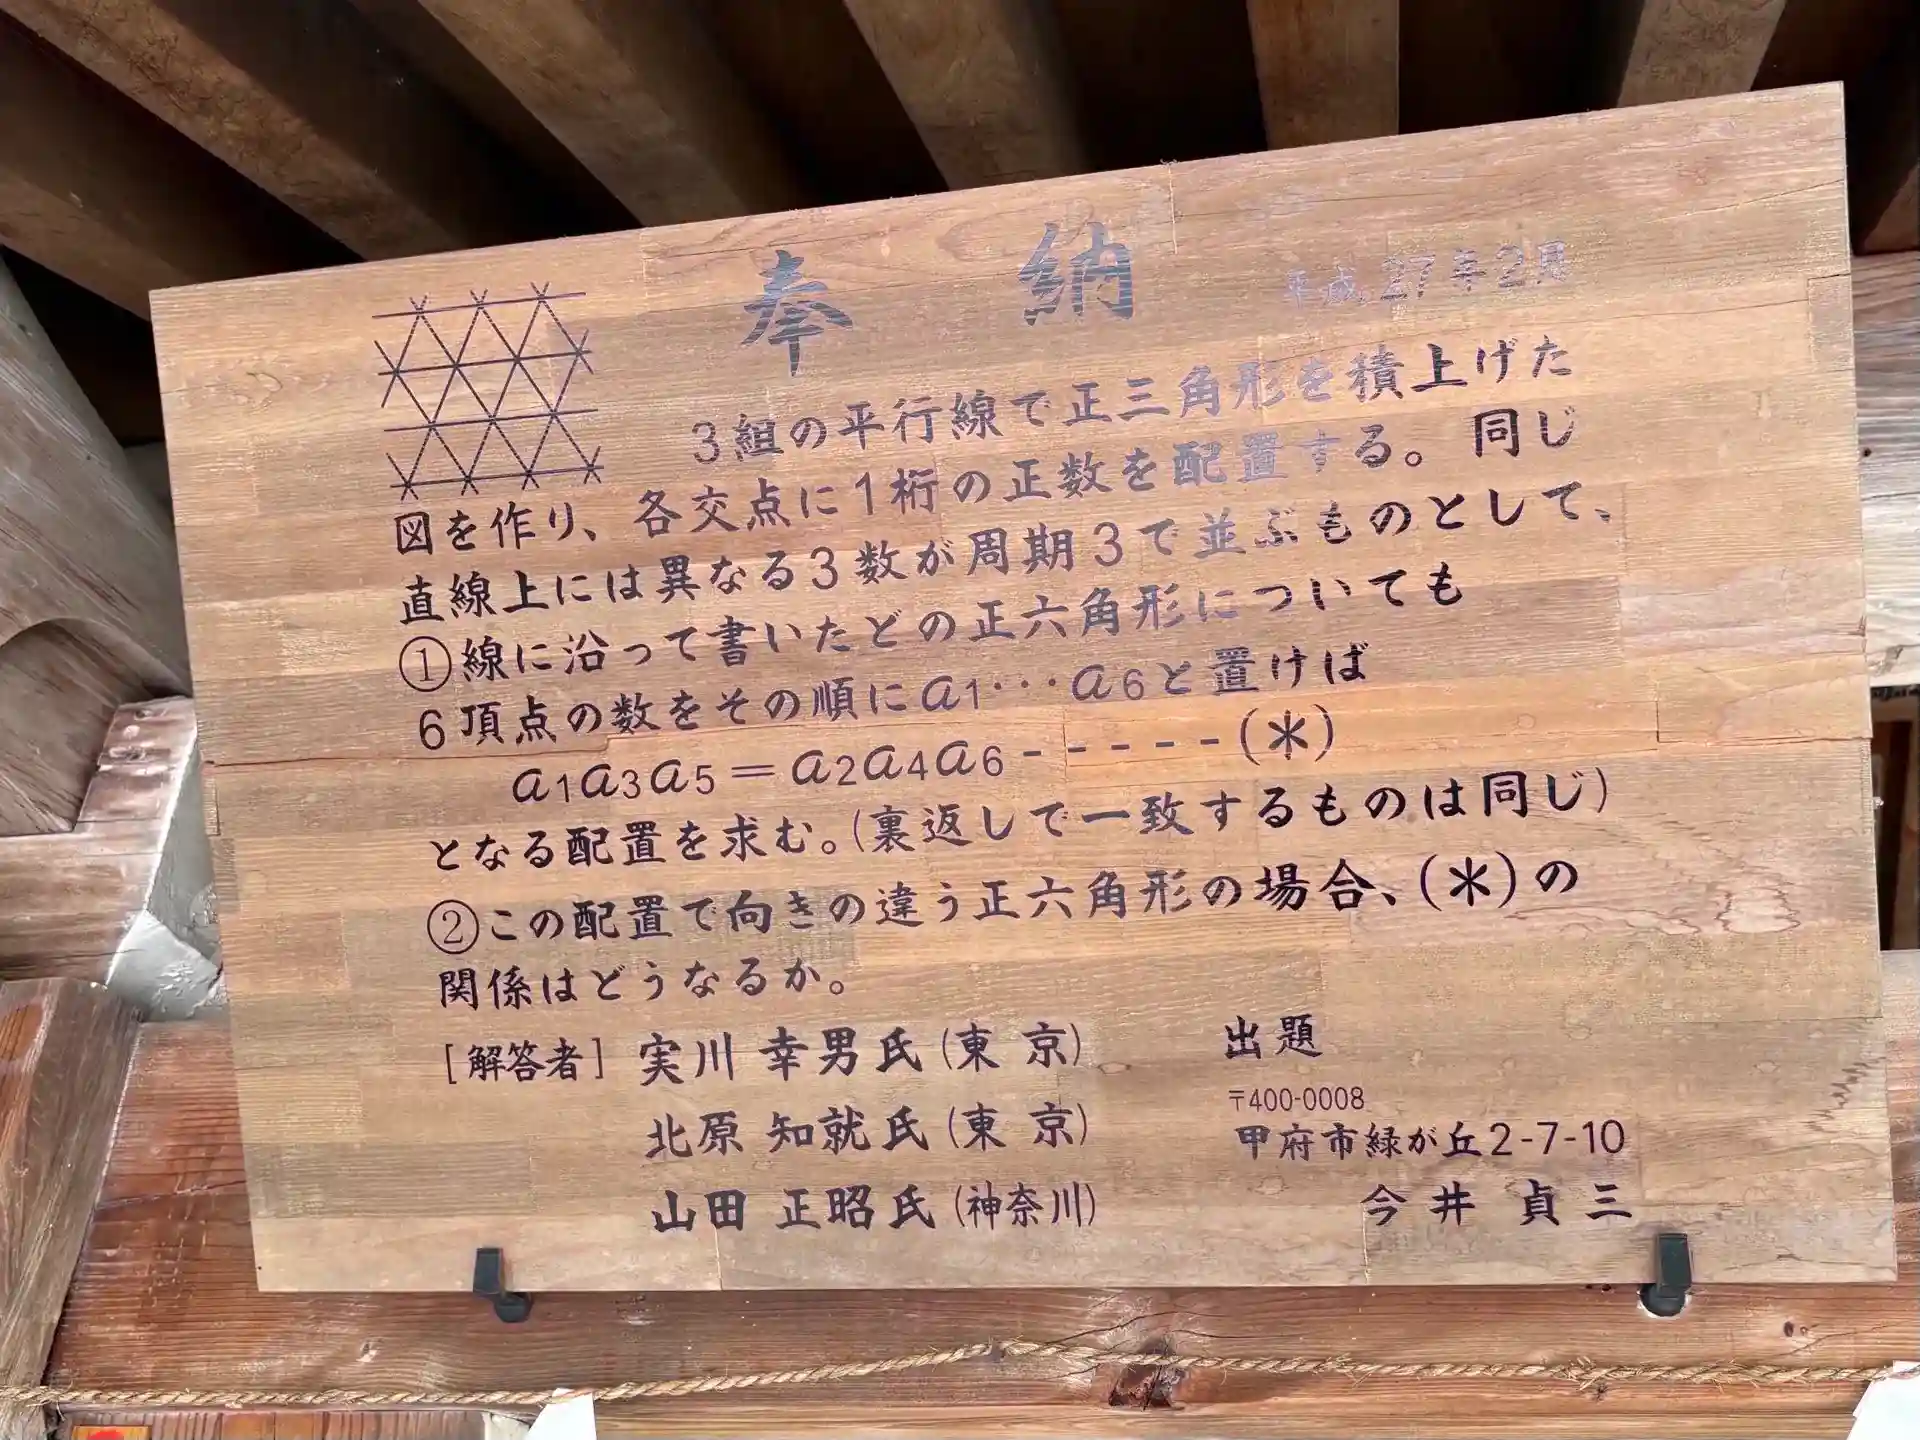 奉 納
平成27年2月
3組の平行線で正三角形を積上げた
図を作り、各交点に1桁の正数を配置する。同じ
直線上には異なる3数が周期3で並ぶものとして、
①線に沿って書いたどの正六角形についても
6頂点の数をその順にa1・・・a6と置けば
a1a3a5=a2a4a6-----(＊)
となる配置を求む。(裏返しで一致するものは同じ)
②この配置で向きの違う正六角形の場合、(＊)の
関係はどうなるか。
[解答者] 実川 幸男氏(東 京)
北原 知就氏(東 京)
山田 正昭氏(神奈川)
出題
〒400-0008
甲府市緑が丘2-7-10
今井 貞三